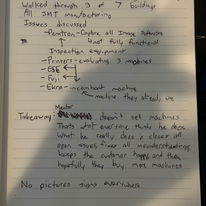 Walked through 3 of 7 buildings
All SMT manufacturing
Issues discussed
- Pemtron - Capture all Image Software
↳ not fully functional
Inspection equipment
- Printers - evaluating 3 machines
- ESE
- Fuji
- Ekra - incumbent machine
↳ machine they already use
Takeaway: Mentor doesn't sell machines
Thats what everyone thinks he does
What he really does is closes all
open issues, fixes all misunderstandings,
keeps the customer happy and then
hopefully they buy more machines
No pictures signs everywhere